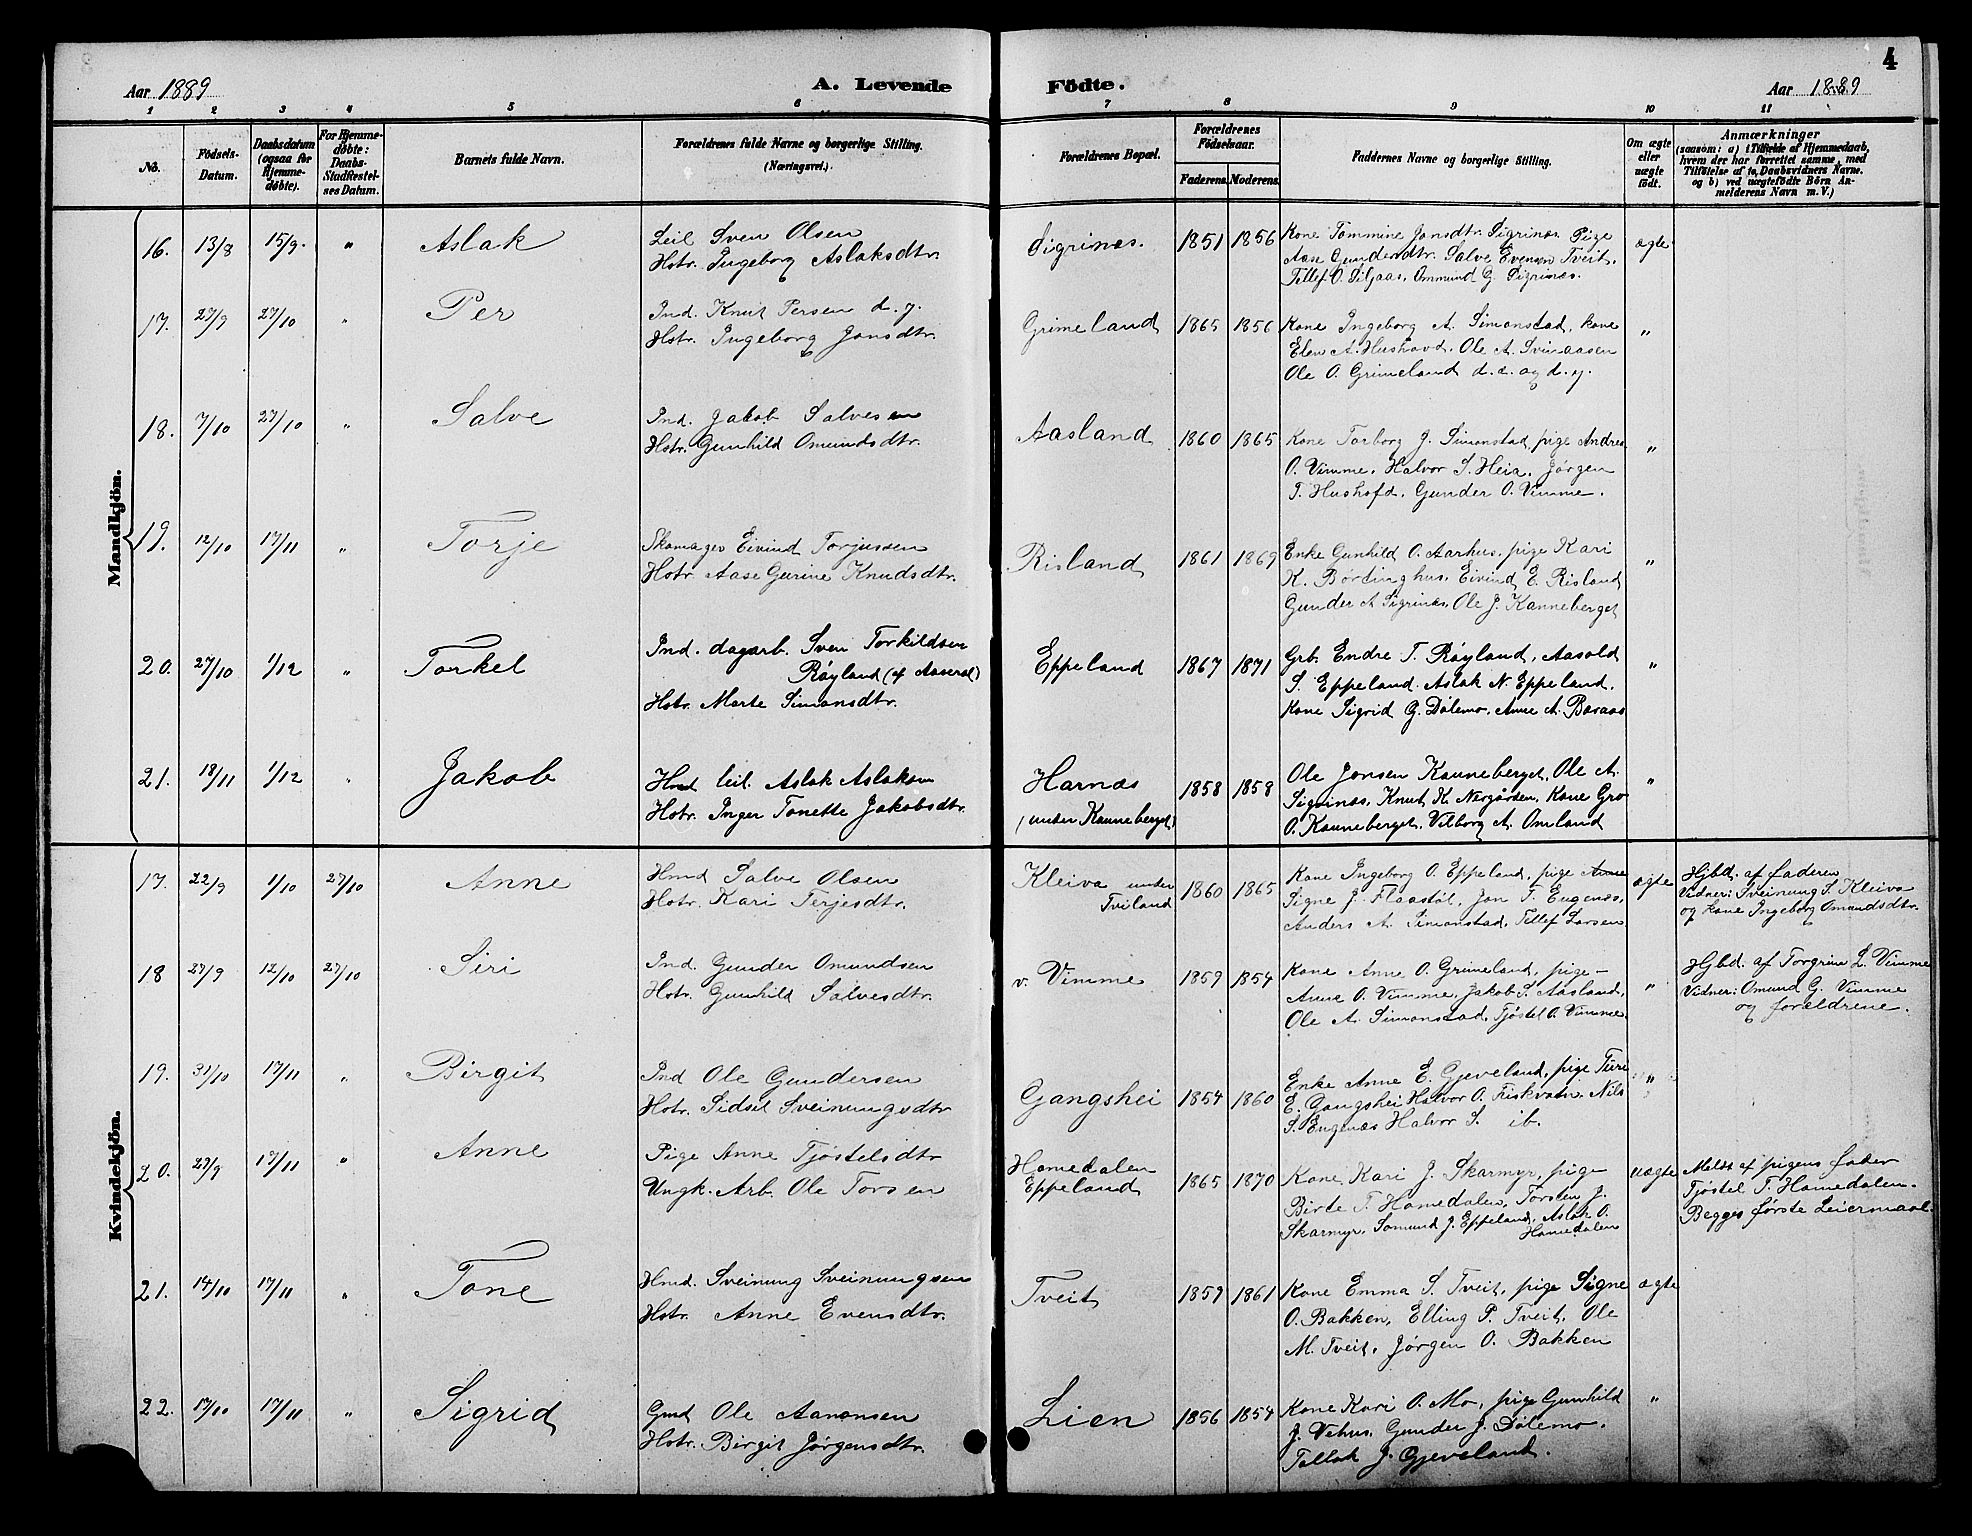 4
Aar 1889
A. Levende
Födte.
Aar 1889
1 2 3 4 5 6 7 8 9 10 11
No.
Födsels-
Datum.
Daabsdatum
(ogsaa for
Hjemme-
döbte).
For Hjemme-
döbte:
Daabs-
Stadfæstel-
ses Datum.
Barnets fulde Navn.
Forældrenes fulde Navne og borgerlige Stilling.
(Næringsvei.)
Forældrenes Bopæl.
Forældrenes
Födselsaar.
Faderens. Moderens.
Faddernes Navne og borgerlige Stilling.
Om ægte
eller
uægte
födt.
Anmærkninger
(saasom: a) i Tilfælde af Hjemmedaab,
hvem der har forrettet samme, med
Tilföielse af to Daabsvidners Navne.
og b) ved uægtefödte Börn An-
melderens Navn m. V.)
Mandkjön.
16. 13/8 15/9. " Aslak
Leil Sven Olsen
Hstr. Ingeborg Aslaksdtr.
Sigrinæs. 1851 1856
Kone Tommine Jonsdtr. Sigrinæs Pige
Aase Gundersdtr. Salve Evensen Tveit.
Tellef O. Siljaas, Ommund G. Sigrinæs.
ægte
17. 27/9 27/10 " Per
Ind. Knut Persen d. y.
Hstr. Ingeborg Jonsdtr.
Grimeland 1865 1856
Kone Ingeborg A. Simonstad, kone
Elen A. Hushovd. Ole A. Svinaasen
Ole O. Grimeland d. e. og d. y.
"
18. 7/10 27/10 " Salve
Ind. Jakob Salvesen
Hstr. Gunhild Omundsdtr.
Aasland 1860 1865
Kone Torborg J. Simonstad, pige Andrea
O. Vimme, Halvor S. Heia, Jørgen
T. Hushofd, Gunder O. Vimme.
"
19. 12/10 17/11 " Torje
Skomager Eivind Torjussen
Hstr. Aase Gurine Knudsdtr.
Risland 1861 1869
Enke Gunhild O. Aarhus, pige Kari
K. Børdinghus, Eivind E. Risland
Gunder A Sigrinæs, Ole J. Kanneberget
"
20. 27/10 1/12 " Torkel
Ind. dagarb. Sven Torkildsen
Røyland (af Aaseral)
Hstr. Marte Simonsdtr.
Eppeland 1867 1871
Grb. Endre T. Røyland, Aasold
S. Eppeland. Aslak N. Eppeland.
Kone Sigrid G. Dølemo, Anne A. Baraas
"
21. 18/11 1/12 " Jakob
Hmd leil. Aslak Aslaksen
Hstr. Inger Tonette Jakobsdtr.
Harnæs
(under Kanneberget)
1858 1858
Ole Jonsen Kanneberget, Ole A.
Sigrinæs, Knut K. Nergården, Kone Gro
O. Kanneberget, Vilborg A. Omland
"
Kvindekjön.
17. 22/9 1/10 27/10 Anne
Hmd Salve Olsen
Hstr. Kari Terjesdtr.
Kleiva under
Tviland
1860 1865
Kone Ingeborg O. Eppeland, pige Anne
Signe J. Flaastøl, Jon T. Eugenæs,
Anders A. Simonstad, Tellef Larsen
ægte
Hjbd. af faderen
Vidner: Sveinung S. Kleiva
og kone Ingeborg Omundsdtr.
18 27/9 12/10 27/10 Siri
Ind. Gunder Omundsen
Hstr. Gunhild Salvesdtr.
v. Vimme 1859 1854
Kone Anne O. Grimeland, pige –
Anne O. Vimme, Jakob S. Aasland,
Ole A. Simonstad, Tjøstel O. Vimme.
"
Hjbd. af Torgrim L. Vimme
Vidner: Omund G. Vimme
og forældrene.
19. 31/10 17/11 " Birgit
Ind Ole Gundersen
Hstr. Sidsel Sveinungsdtr
Gangshei 1854 1860
Enke Anne E. Gjeveland, pige Turi
E. Gangshei Halvor O. Fiskvatn. Nils
S. Eugenæs Halvor S. ib.
"
20. 27/9 17/11 " Anne
Pige Anne Tjøstelsdtr
Ungk. Arb. Ole Torsen
Homedalen
Eppeland
1865 1870
Kone Kari J. Skarmyr, pige
Birte T. Homedalen, Torsten J.
Skarmyr, Somund J. Eppeland, Aslak O.
Homedalen
uægte
Meldt af pigens fader
Tjøstel T. Homedalen.
Begges første Leiermaal.
21. 14/10 17/11 " Tone
Hmd. Sveinung Sveinungsen
Hstr. Anne Evensdtr.
Tveit 1859 1861
Kone Emma S. Tveit, pige Signe
O. Bakken, Elling P. Tveit, Ole
M. Tveit, Jørgen O. Bakken
ægte
22. 17/10 17/11 " Sigrid
Gmd Ole Aanonsen
Hstr. Birgit Jørgensdtr.
Lien 1856 1854
Kone Kari O. Mo, pige Gunhild
J. Vehus, Gunder J. Dølemo.
Tellak J. Gjeveland.
"